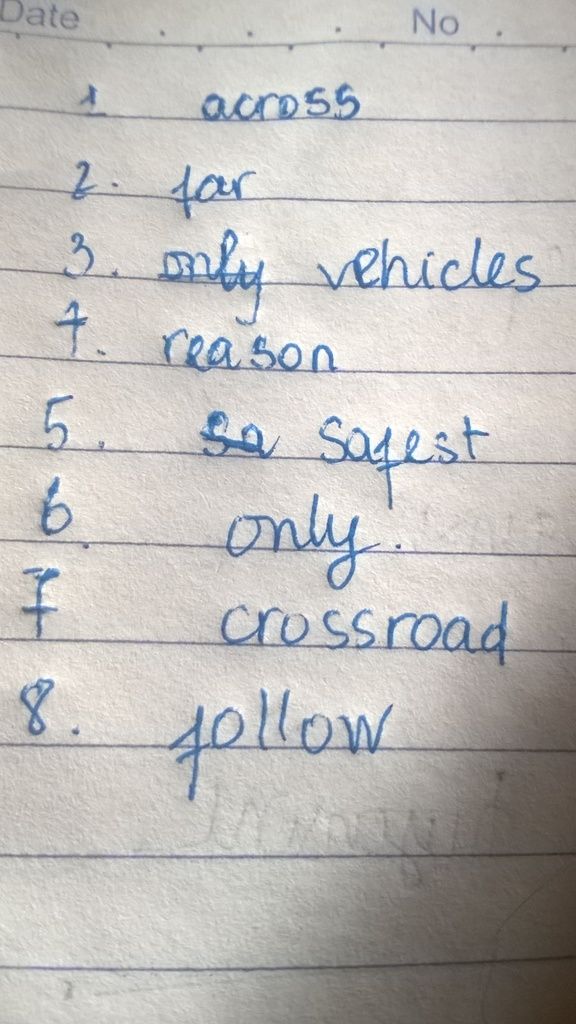 Date No.
1 across
2. far
3. only vehicles
7. reason
5. sa safest
6. only.
7 crossroad
8. follow